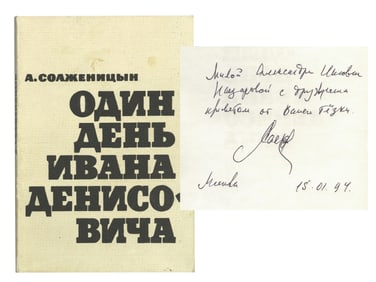 А. СОЛЖЕНИЦЫН
ОДИН
ДЕНЬ
ИВАНА
ДЕНИСО-
ВИЧА
Милой Александре Ивановне
с дружеским
приветом от Вашей тёзки.
Москва 15.01.94.